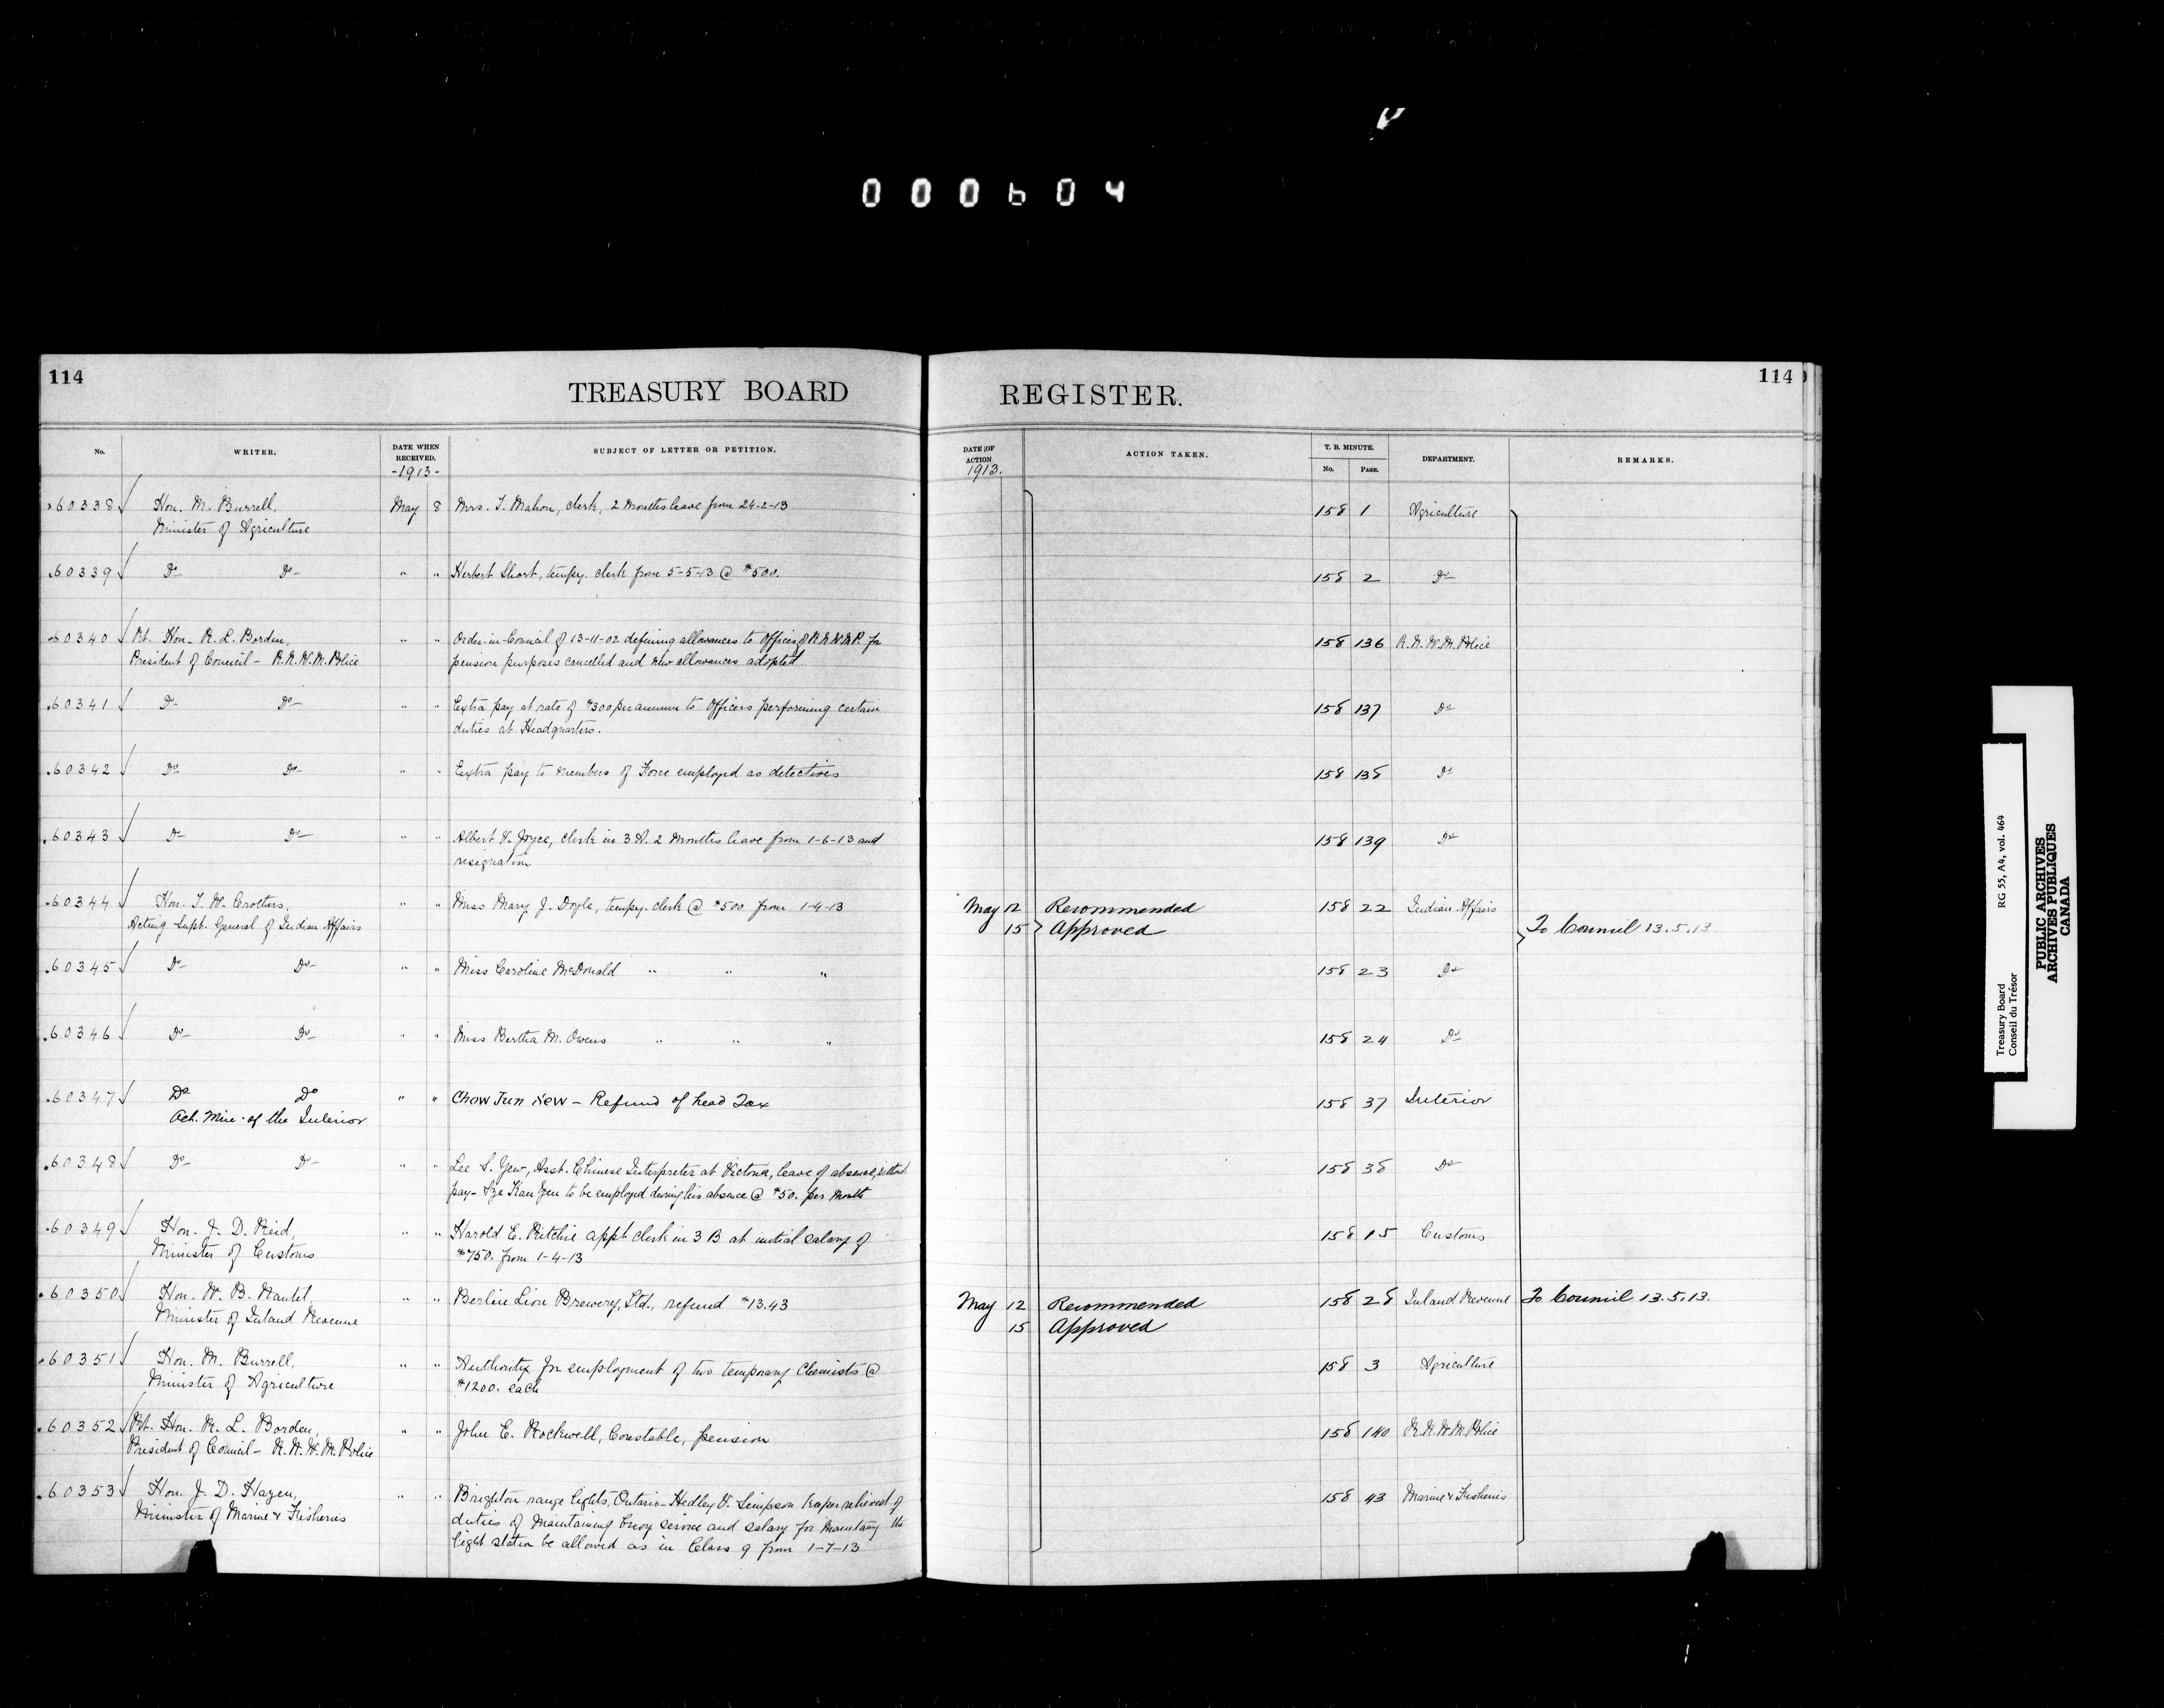 000604
114
TREASURY BOARD
REGISTER.
114
No.
WRITER.
DATE WHEN RECEIVED.
-1913-
SUBJECT OF LETTER OR PETITION.
DATE OF ACTION
1913.
ACTION TAKEN.
T. B. MINUTE.
No.
PAGE.
DEPARTMENT.
REMARKS.
60338 Hon. M. Burrell, May 8 Mrs. J. Mahon, clerk, 2 months leave from 24-2-13 158 1 Agriculture
Minister of Agriculture
60339 Do Do " " Herbert Short, tempy. clerk from 5-5-13 @ $500. 158 2 Do
60340 Rt. Hon. R. L. Borden, " " Order-in-Council of 13-11-02 defining allowances to Officers of R.N.W.M.P. for 158 136 R.N.W.M. Police
President of Council - R.N.W.M. Police pension purposes cancelled and new allowances adopted.
60341 Do Do " " Extra pay at rate of $300 per annum to Officers performing certain 158 137 Do
duties at Headquarters.
60342 Do Do " " Extra pay to members of Force employed as detectives 158 138 Do
60343 Do Do " " Albert V. Joyce, clerk in 3 A. 2 months leave from 1-6-13 and 158 139 Do
resignation
60344 Hon. T. W. Crothers, " " Miss Mary J. Doyle, tempy. clerk @ $500 from 1-4-13 May 12 Recommended 158 22 Indian Affairs
Acting Supt. General of Indian Affairs 15 Approved To Council 13.5.13.
60345 Do Do " " Miss Caroline McDonald " " " 158 23 Do
60346 Do Do " " Miss Bertha M. Owens " " " 158 24 Do
60347 Do Do " " Chow Jun New - Refund of head Tax 158 37 Interior
Act. Min. of the Interior
60348 Do Do " " Lee S. Yew, Asst. Chinese Interpreter at Victoria, leave of absence, without 158 38 Do
pay - Sze Kan Yen to be employed during his absence @ $50. per month
60349 Hon. J. D. Reid, " " Harold E. Ritchie appt clerk in 3 B at initial salary of 158 15 Customs
Minister of Customs $750. from 1-4-13
60350 Hon. W. B. Nantel, " " Berlin Lion Brewery, Ltd., refund $13.43 May 12 Recommended 158 28 Inland Revenue To Council 13.5.13.
Minister of Inland Revenue 15 Approved
60351 Hon. M. Burrell, " " Authority for employment of two temporary Chemists @ 158 3 Agriculture
Minister of Agriculture $1200. each
60352 Rt. Hon. R. L. Borden, " " John E. Rockwell, Constable, pension 158 140 R.N.W.M. Police
President of Council - R.N.W.M. Police
60353 Hon. J. D. Hazen, " " Brighton range lights, Ontario - Hedley V. Simpson keeper relieved of 158 43 Marine & Fisheries
Minister of Marine & Fisheries duties of maintaining buoy service and salary for maintaing the
light station be allowed as in Class 9 from 1-7-13
Treasury Board
Conseil du Trésor
RG 55, A4, vol. 464
PUBLIC ARCHIVES
ARCHIVES PUBLIQUES
CANADA